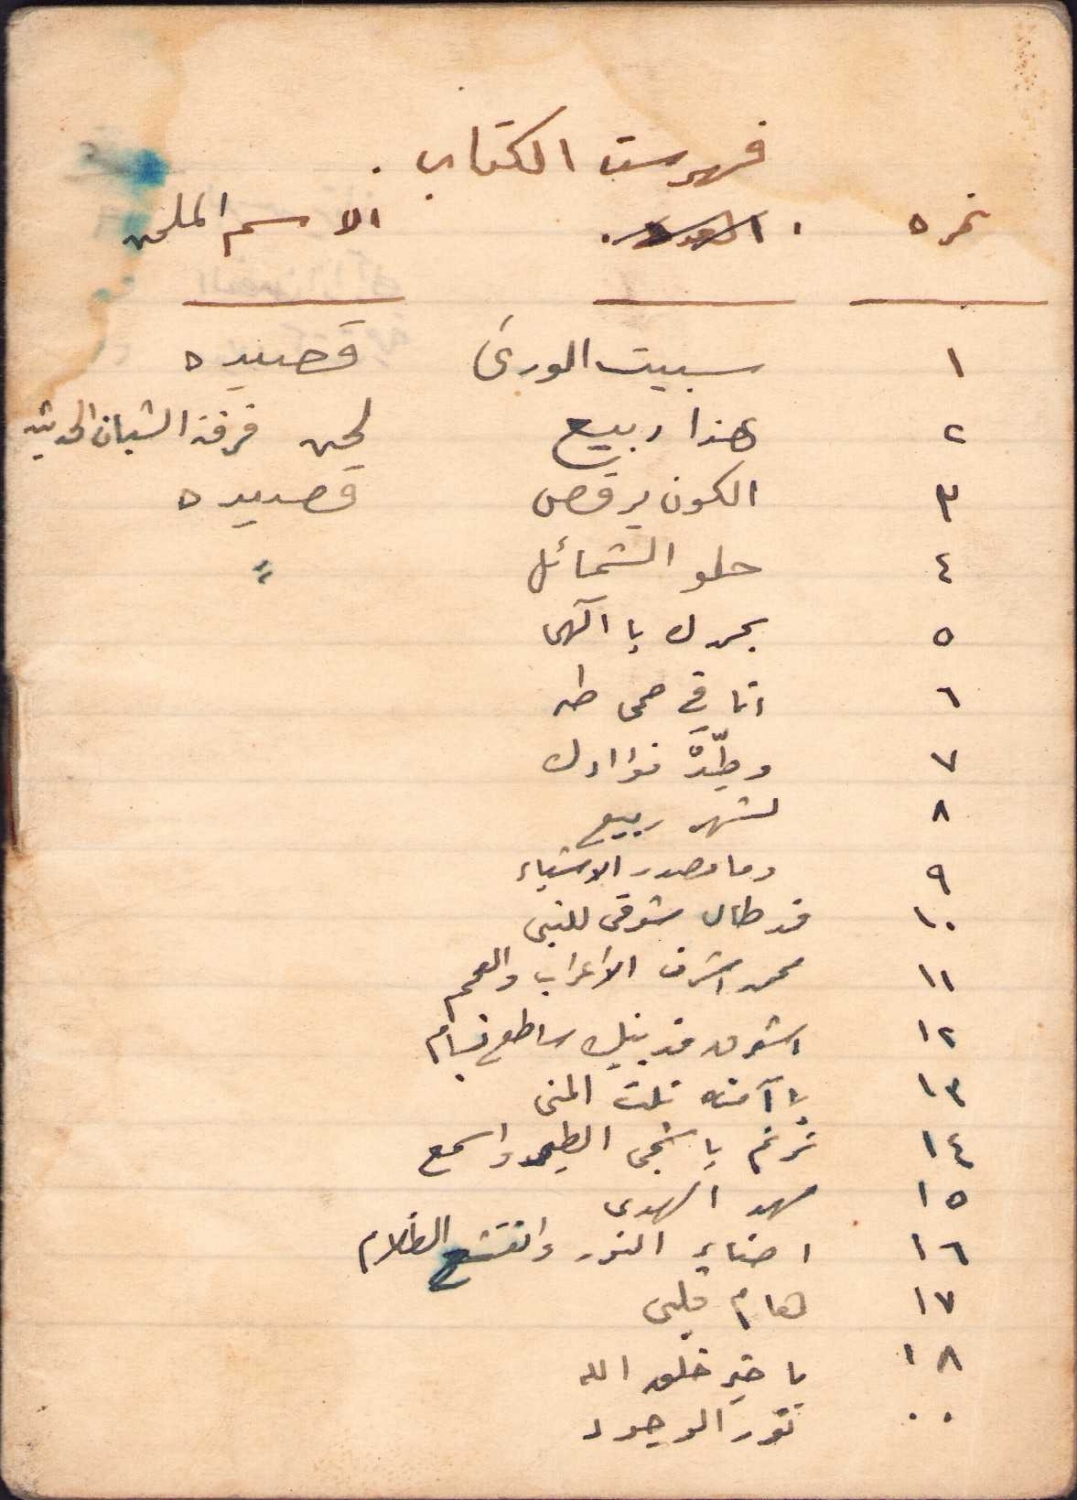 فهرست الكتاب.
نمره . الاسم الملحن
١ سبيت الورى قصيده
٢ هذا ربيع لحن فرقة الشبان الحديثه
٣ الكون يرقص قصيده
٤ حلو الشمائل "
٥ بحمدك يا آلهى
٦ انا في حمى طه
٧ فؤادك
٨ لشهر ربيع
٩ وما مصدر الاشياء
١٠ قد طال شوقى للنبى
١١ محمد اشرف الاعراب والعجم
١٢ ساطع بسام
١٣ يا آمنه نلت المنى
١٤ ترنم يا شجى الطير واسمع
١٥ مهد الهدى
١٦ اضاء النور وانقشع الظلام
١٧ هام قلبى
١٨ يا خير خلق الله
.. نور الوجود